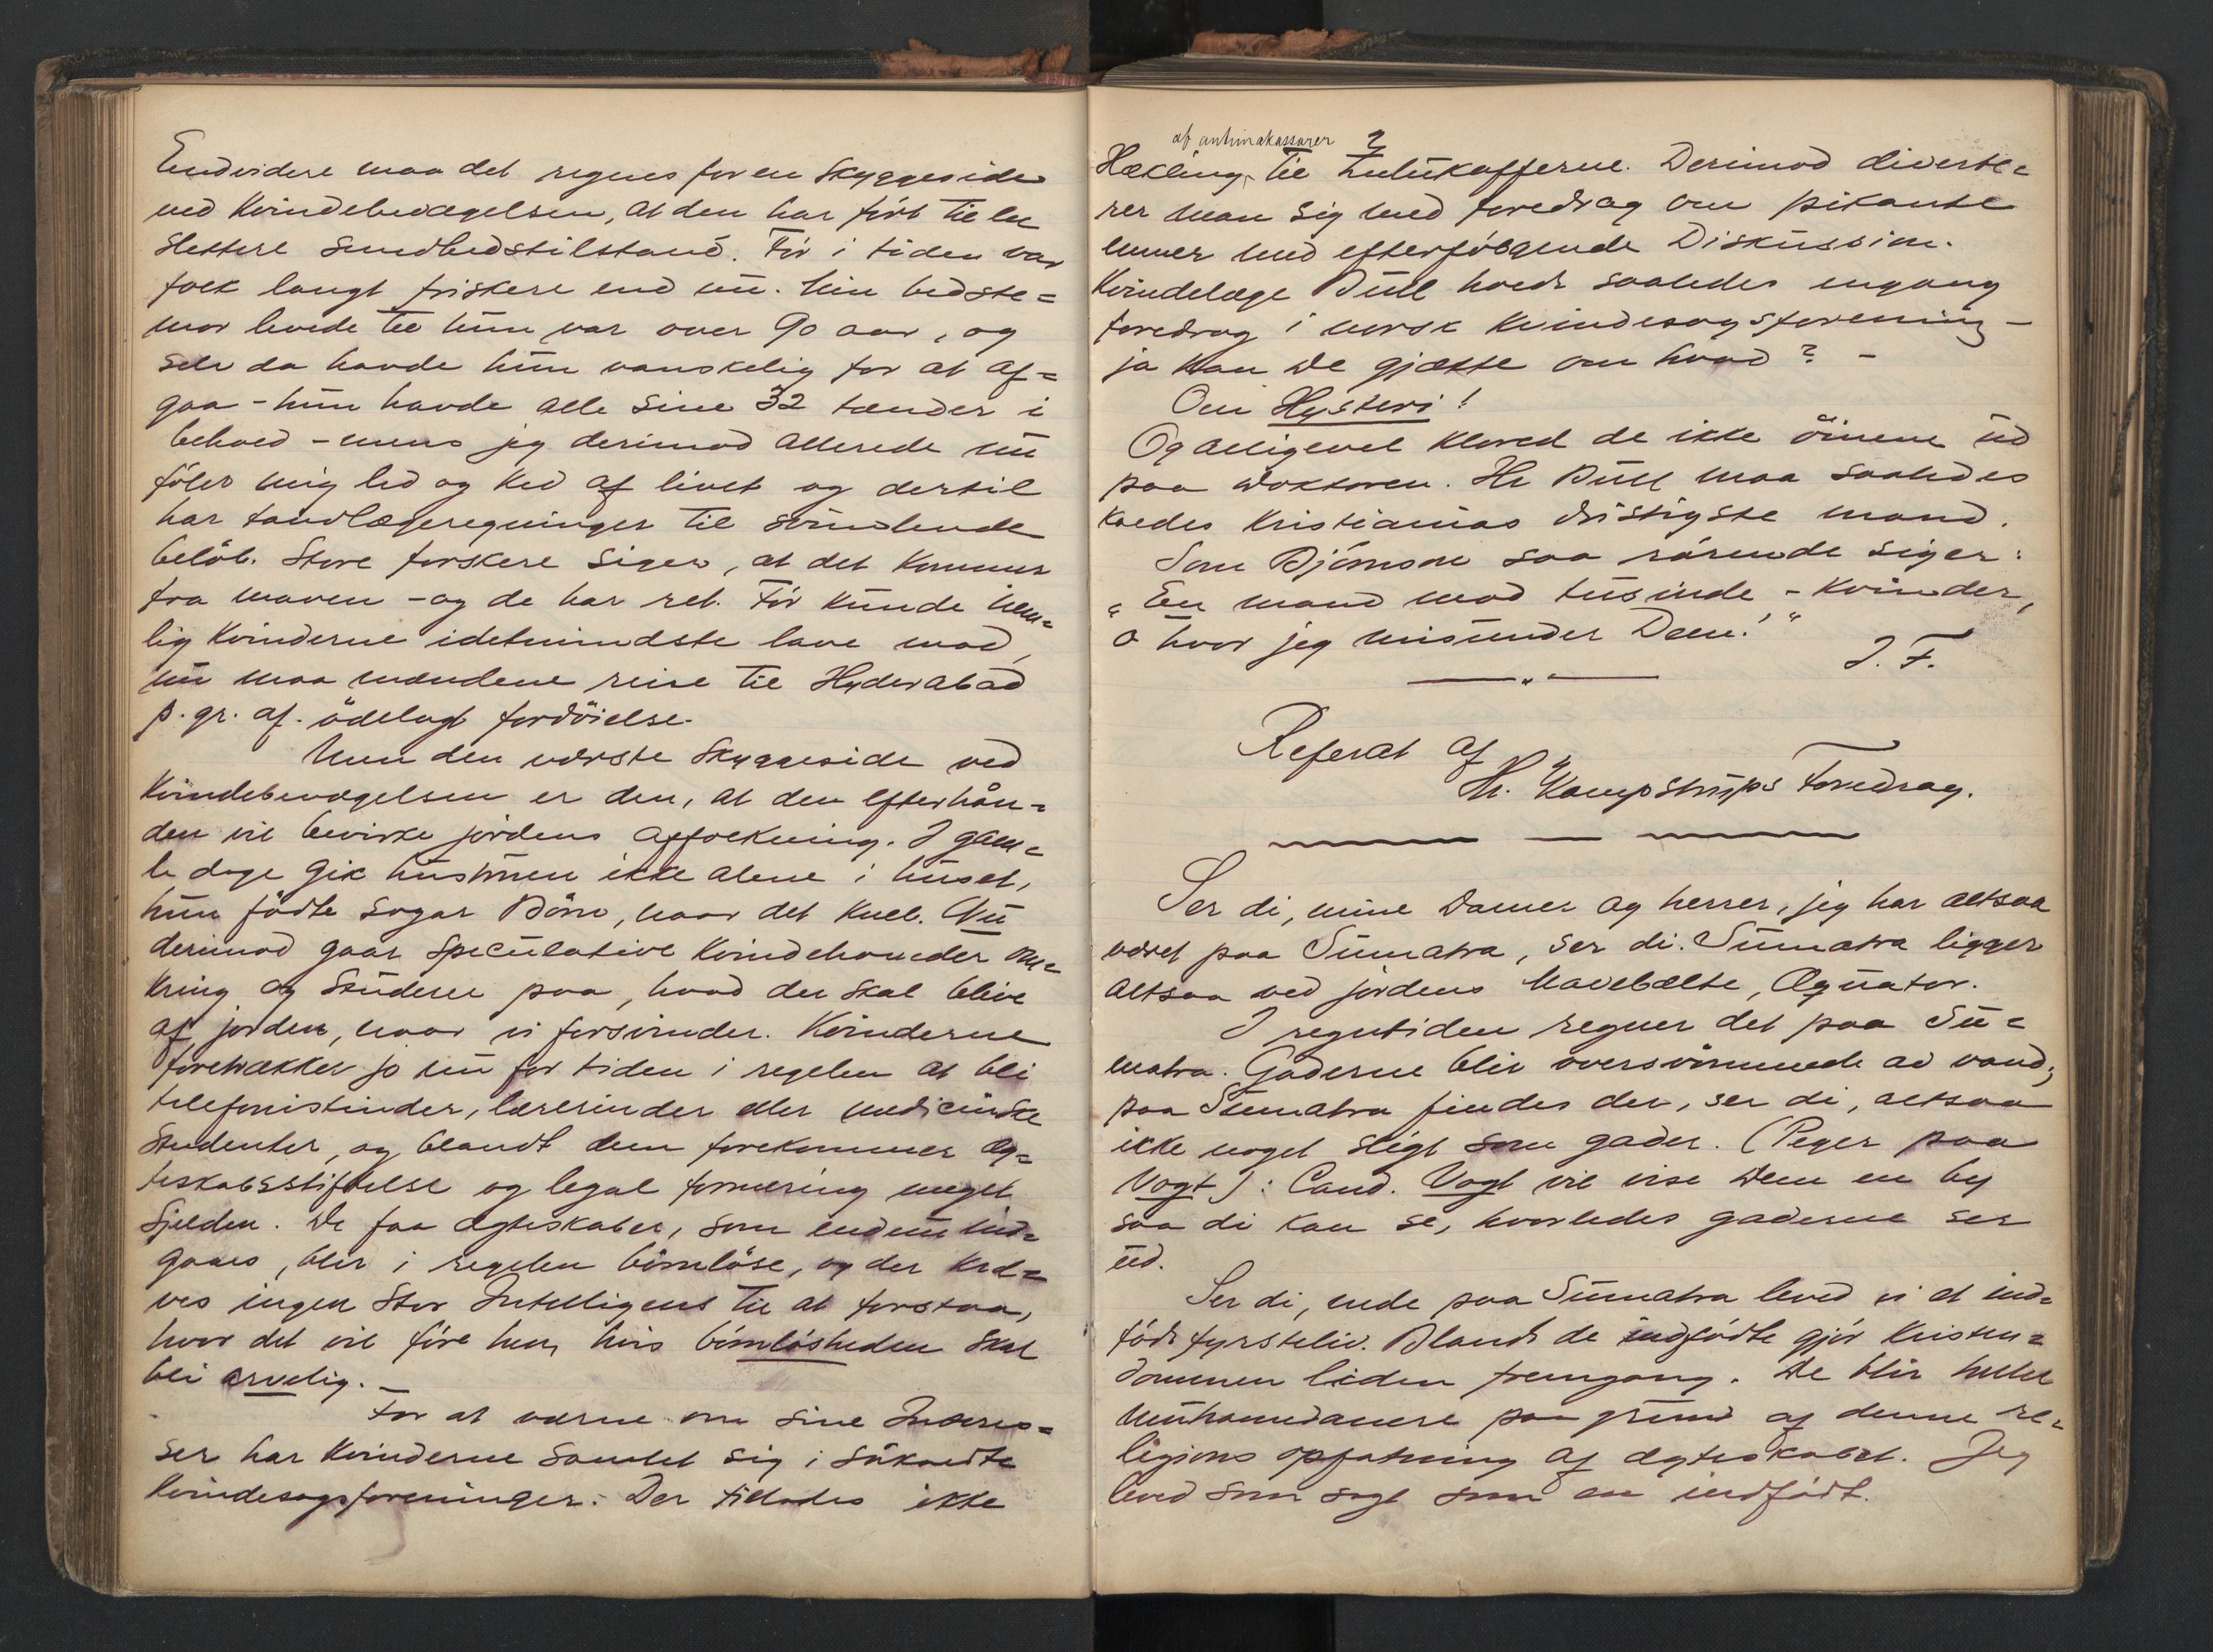 Endvidere maa det regnes for en Skyggeside
ved Kvindebevægelsen, at den har ført til en
slettere Sundhedstilstand. Før i tiden var
folk langt friskere end nu. Min bedste=
mor levede til hun var over 90 aar, og
selv da havde hun vanskelig for at af=
gaa - hun havde alle sine 32 tænder i
behold - mens jeg derimod allerede nu
føler mig led og ked af livet og dertil
har tandlægeregninger til svimlende
beløb. Store forskere siger, at det kommer
fra maven - og de har ret. Før kunde nem=
lig Kvinderne idetmindste lave mad,
nu maa mændene reise til Hyderabad
p. gr. af. ødelagt fordøielse.
Men den værste Skyggeside ved
Kvindebevægelsen er den, at den efterhån=
den vil bevirke jordens affolkning. I gam=
le dage gik husmoren ikke alene i huset,
hun fødte sogar Børn, naar det kneb. Nu
derimod gaar speculative Kvindehoveder om=
kring og studerer paa, hvad der skal blive
af jorden, naar vi forsvinder. Kvinderne
foretrækker jo nu for tiden i regelen at bli
telefonistinder, lærerinder eller medicinske
Studenter, og blandt dem forekommer æg=
teskabsstiftelse og legal formering meget
sjelden. De faa ægteskaber, som endnu ind=
gaaes, blir i regelen børnløse, og der kræ=
ves ingen stor Intelligens til at forstaa,
hvor det vil føre hen, hvis børnløsheden skal
bli arvelig. _
For at værne om sine Interes=
ser har Kvinderne samlet sig i såkaldte
Kvindesagsforeninger. Der tillades ikke
af antimakassarer ?
Hækling til Zulukafferne. Derimod diverte=
rer man sig med foredrag om pikante
emner med efterfølgende Diskussion.
Kvindelæge Bull holdt saaledes engang
foredrag i norsk Kvindesagsforening -
ja kan De gjætte om hvad? -
Om Hysteri!
Og alligevel klored de ikke øinene ud
paa doktoren. Hr Bull maa saaledes
kaldes Kristianias dristigste mand.
Som Bjørnson saa rørende siger:
"En mand mod tusinde - Kvinder,
o hvor jeg misunder Dem!"
J. F.
Referat af
Hr. Kampstrups Foredrag.
Ser di, mine Damer og herrer, jeg har altsaa
været paa Sumatra, ser di. Sumatra ligger
altsaa ved jordens Mavebælte, Æquator.
I regntiden regner det paa Su=
matra. Gaderne blir oversvømmede av vand;
paa Sumatra findes der, ser di, altsaa
ikke noget sligt som gader. (Peger paa
Vogt): Cand. Vogt vil vise dem en by
saa di kan se, hvorledes gaderne ser
ud.
Ser di, nede paa Sumatra leved vi et ind=
født fyrsteliv. Blandt de indfødte gjør Kristen=
dommen liden fremgang. De blir heller
Muhamedanere paa grund af denne re=
ligions opfatning af ægteskabet. Jeg
leved som sagt som en indfødt.